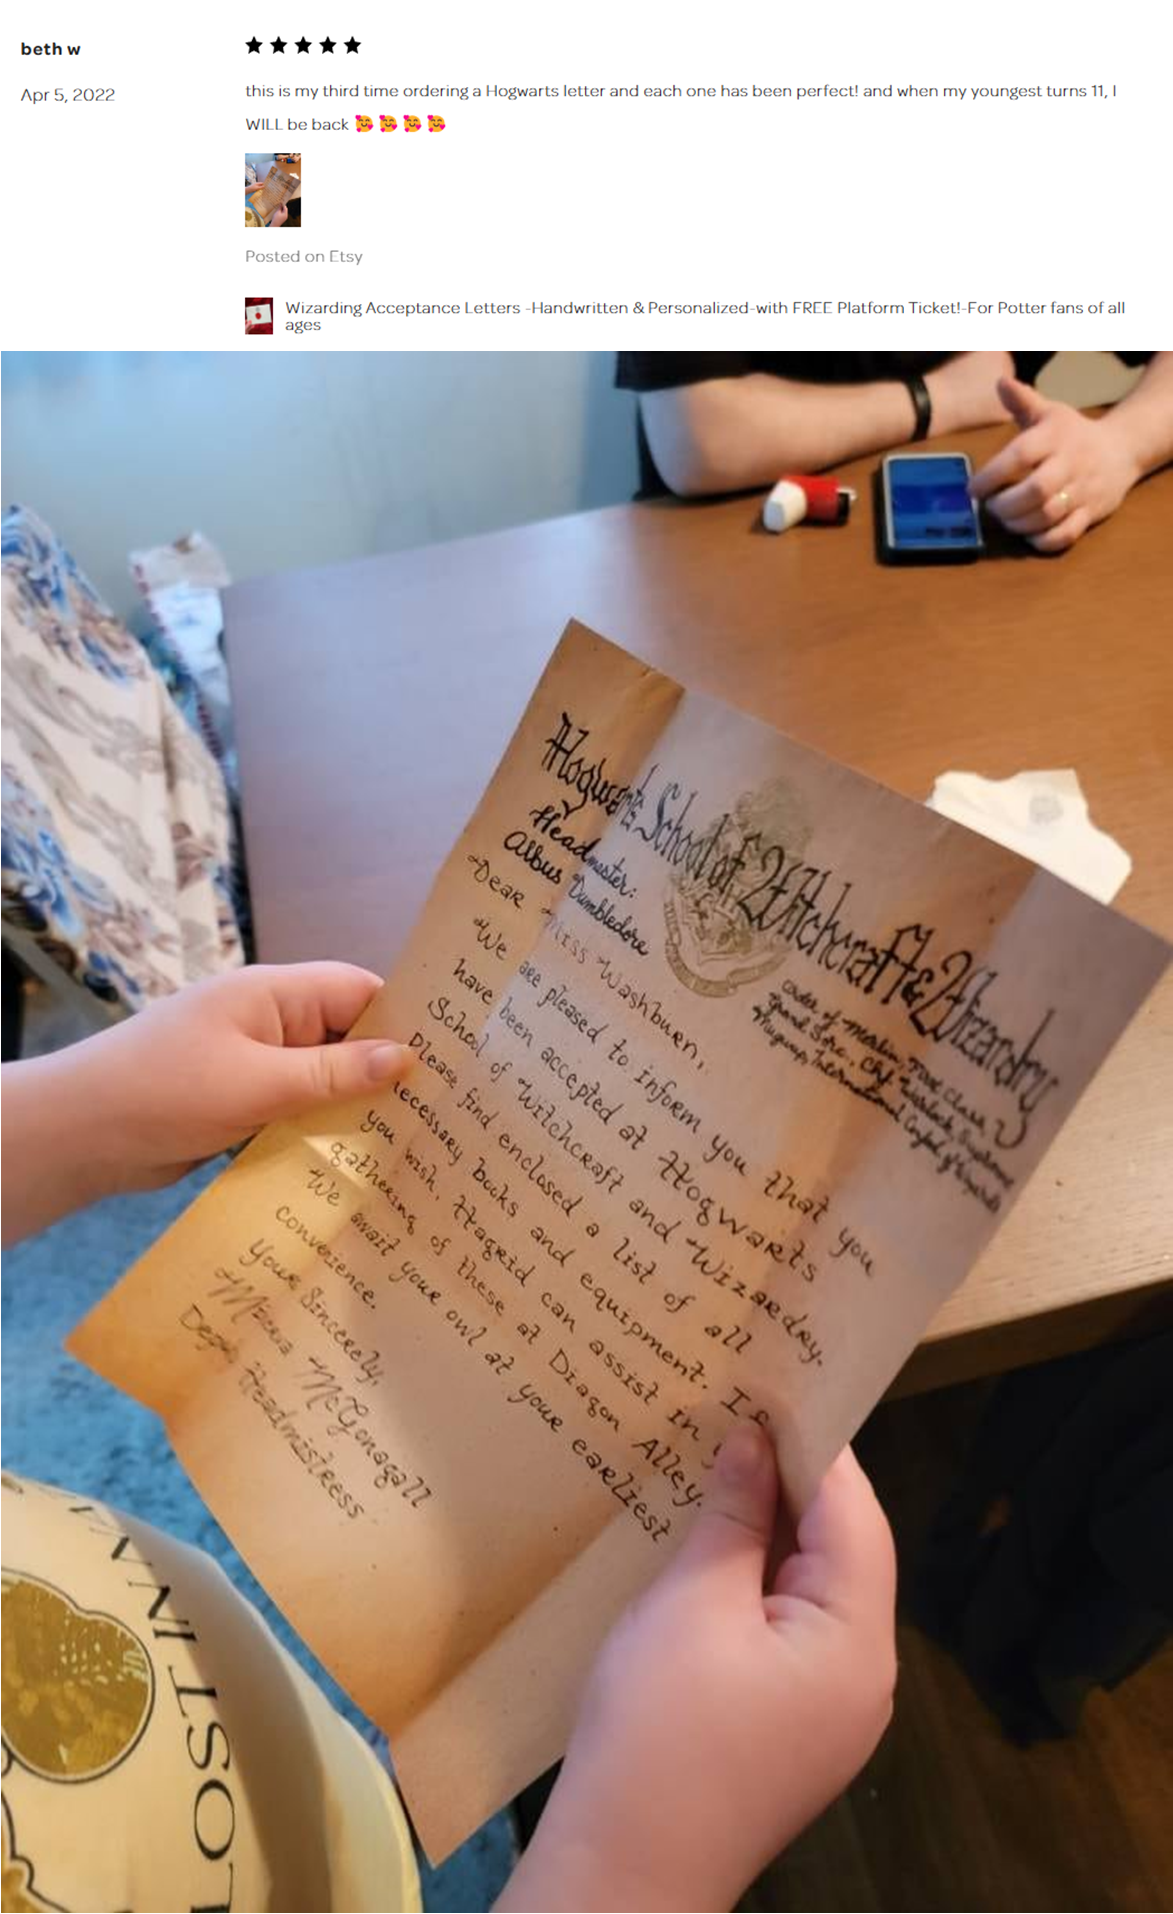 beth w
Apr 5, 2022
this is my third time ordering a Hogwarts letter and each one has been perfect! and when my youngest turns 11, I
WILL be back 🥰 🥰 🥰 🥰
Posted on Etsy
Wizarding Acceptance Letters -Handwritten & Personalized-with FREE Platform Ticket!-For Potter fans of all
ages
Hogwarts School of Witchcraft & Wizardry
Headmaster:
Albus Dumbledore
Order of Merlin, First Class,
Grand Sorc., Chf. Warlock, Supreme
Mugwump, International Confed. of Wizards
Dear Miss Washburn,
We are pleased to inform you that you
have been accepted at Hogwarts
School of Witchcraft and Wizardry.
Please find enclosed a list of all
necessary books and equipment. If
you wish, Hagrid can assist in
gathering of these at Diagon Alley.
We await your owl at your earliest
convenience.
Your Sincerely,
McGonagall
Headmistress